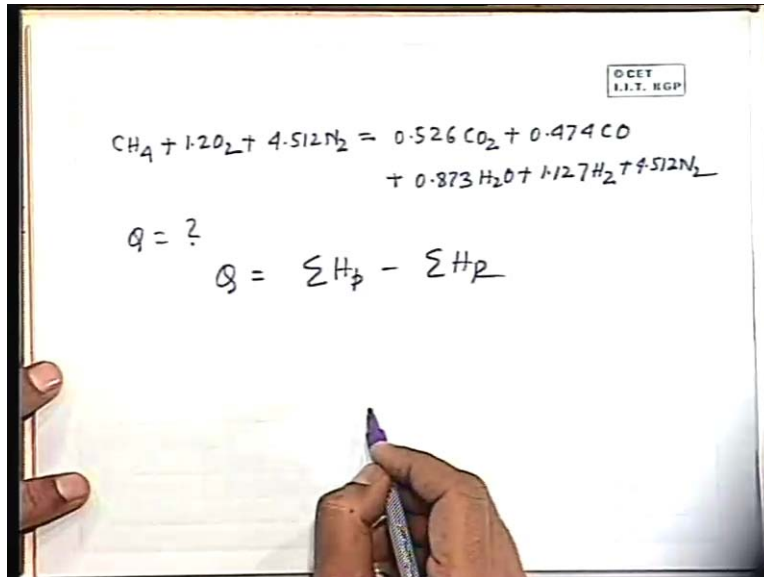 © CET
I.I.T. KGP
CH₄ + 1.2O₂ + 4.512N₂ = 0.526 CO₂ + 0.474 CO
+ 0.873 H₂O + 1.127 H₂ + 4.512N₂
Q = ?
Q = ΣHₚ − ΣH_R